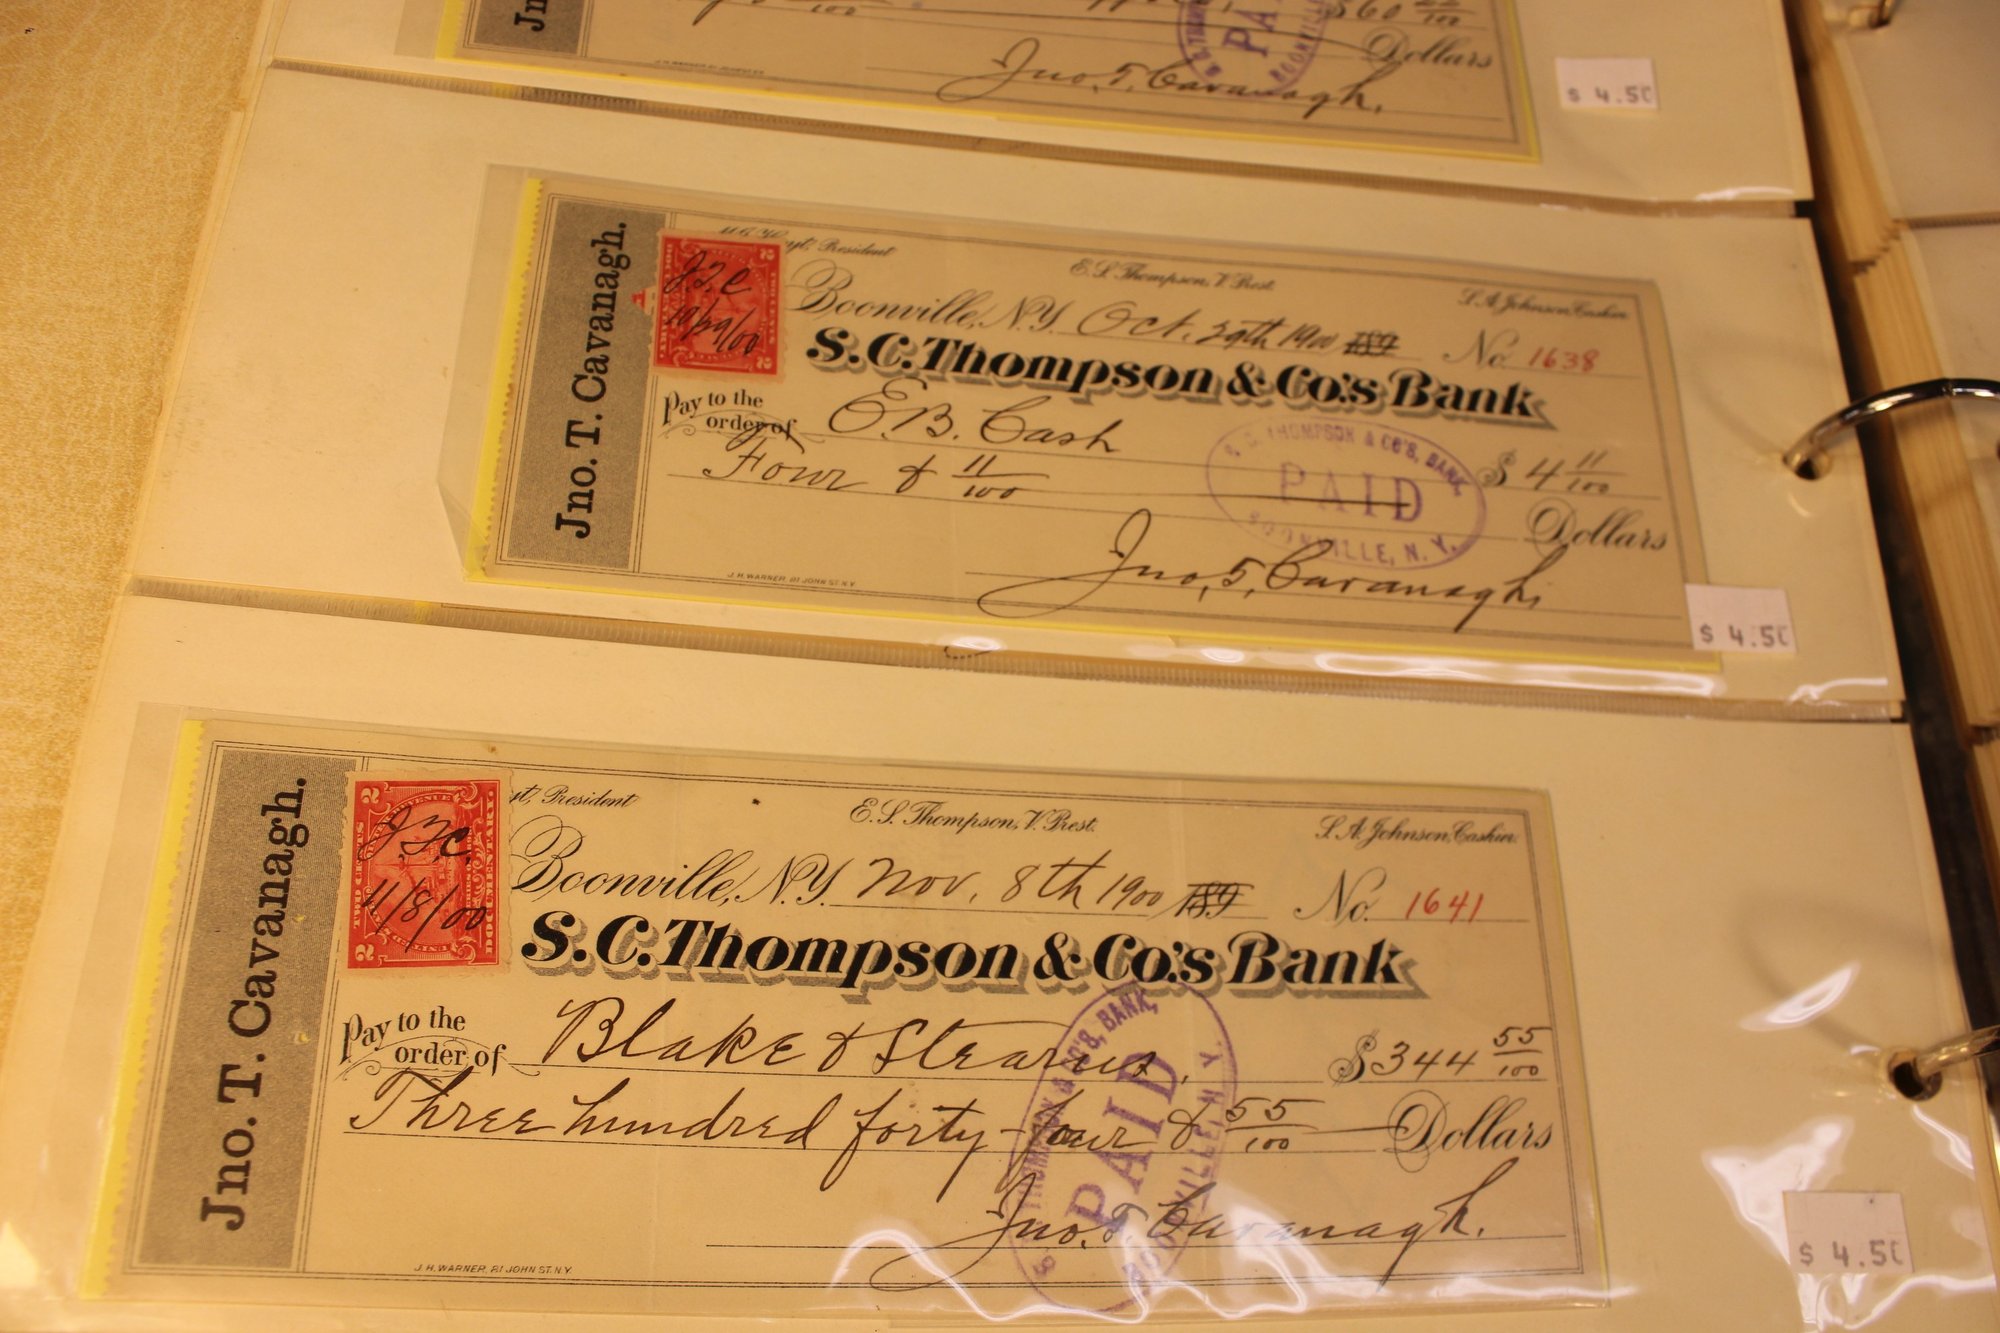 Jno.
/100
$60 /100
PAID
BOONVILLE
Dollars
Jno. T. Cavanagh.
$ 4.50
Jno. T. Cavanagh.
President
E. S. Thompson, V. Prest.
S. A. Johnson, Cashier.
2
J.T.C
10/29/00
Boonville, N.Y. Oct. 29th 1900 189
No. 1638
S. C. Thompson & Co's Bank
Pay to the order of E. B. Cash
$ 4 11/100
Four & 11/100
Dollars
S. C. THOMPSON & CO'S, BANK,
PAID
BOONVILLE, N. Y.
Jno. T. Cavanagh.
J. H. WARNER, 81 JOHN ST. N.Y.
$ 4.50
Jno. T. Cavanagh.
President
E. S. Thompson, V. Prest.
S. A. Johnson, Cashier.
2
DOCUMENTARY
J.T.C.
11/8/00
Boonville, N.Y. Nov. 8th 1900 189
No. 1641
S. C. Thompson & Co's Bank
Pay to the order of Blake & Stearns.
$ 344 55/100
Three hundred forty-four & 55/100 Dollars
S. C. THOMPSON & CO'S, BANK,
PAID
BOONVILLE, N. Y.
Jno. T. Cavanagh.
J. H. WARNER, 81 JOHN ST. N.Y.
$ 4.50